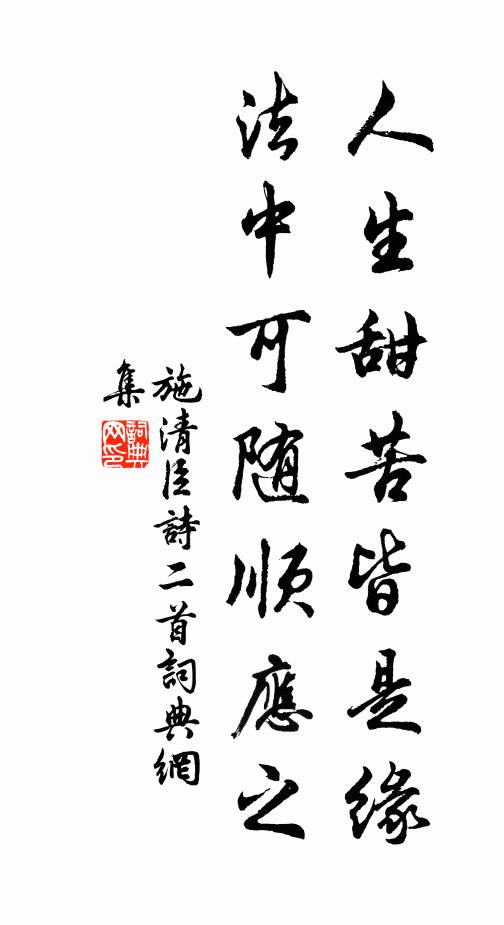 人生甜苦皆是缘
法中可随顺應之
施清臣詩二首詞典網
集
詞典
网印